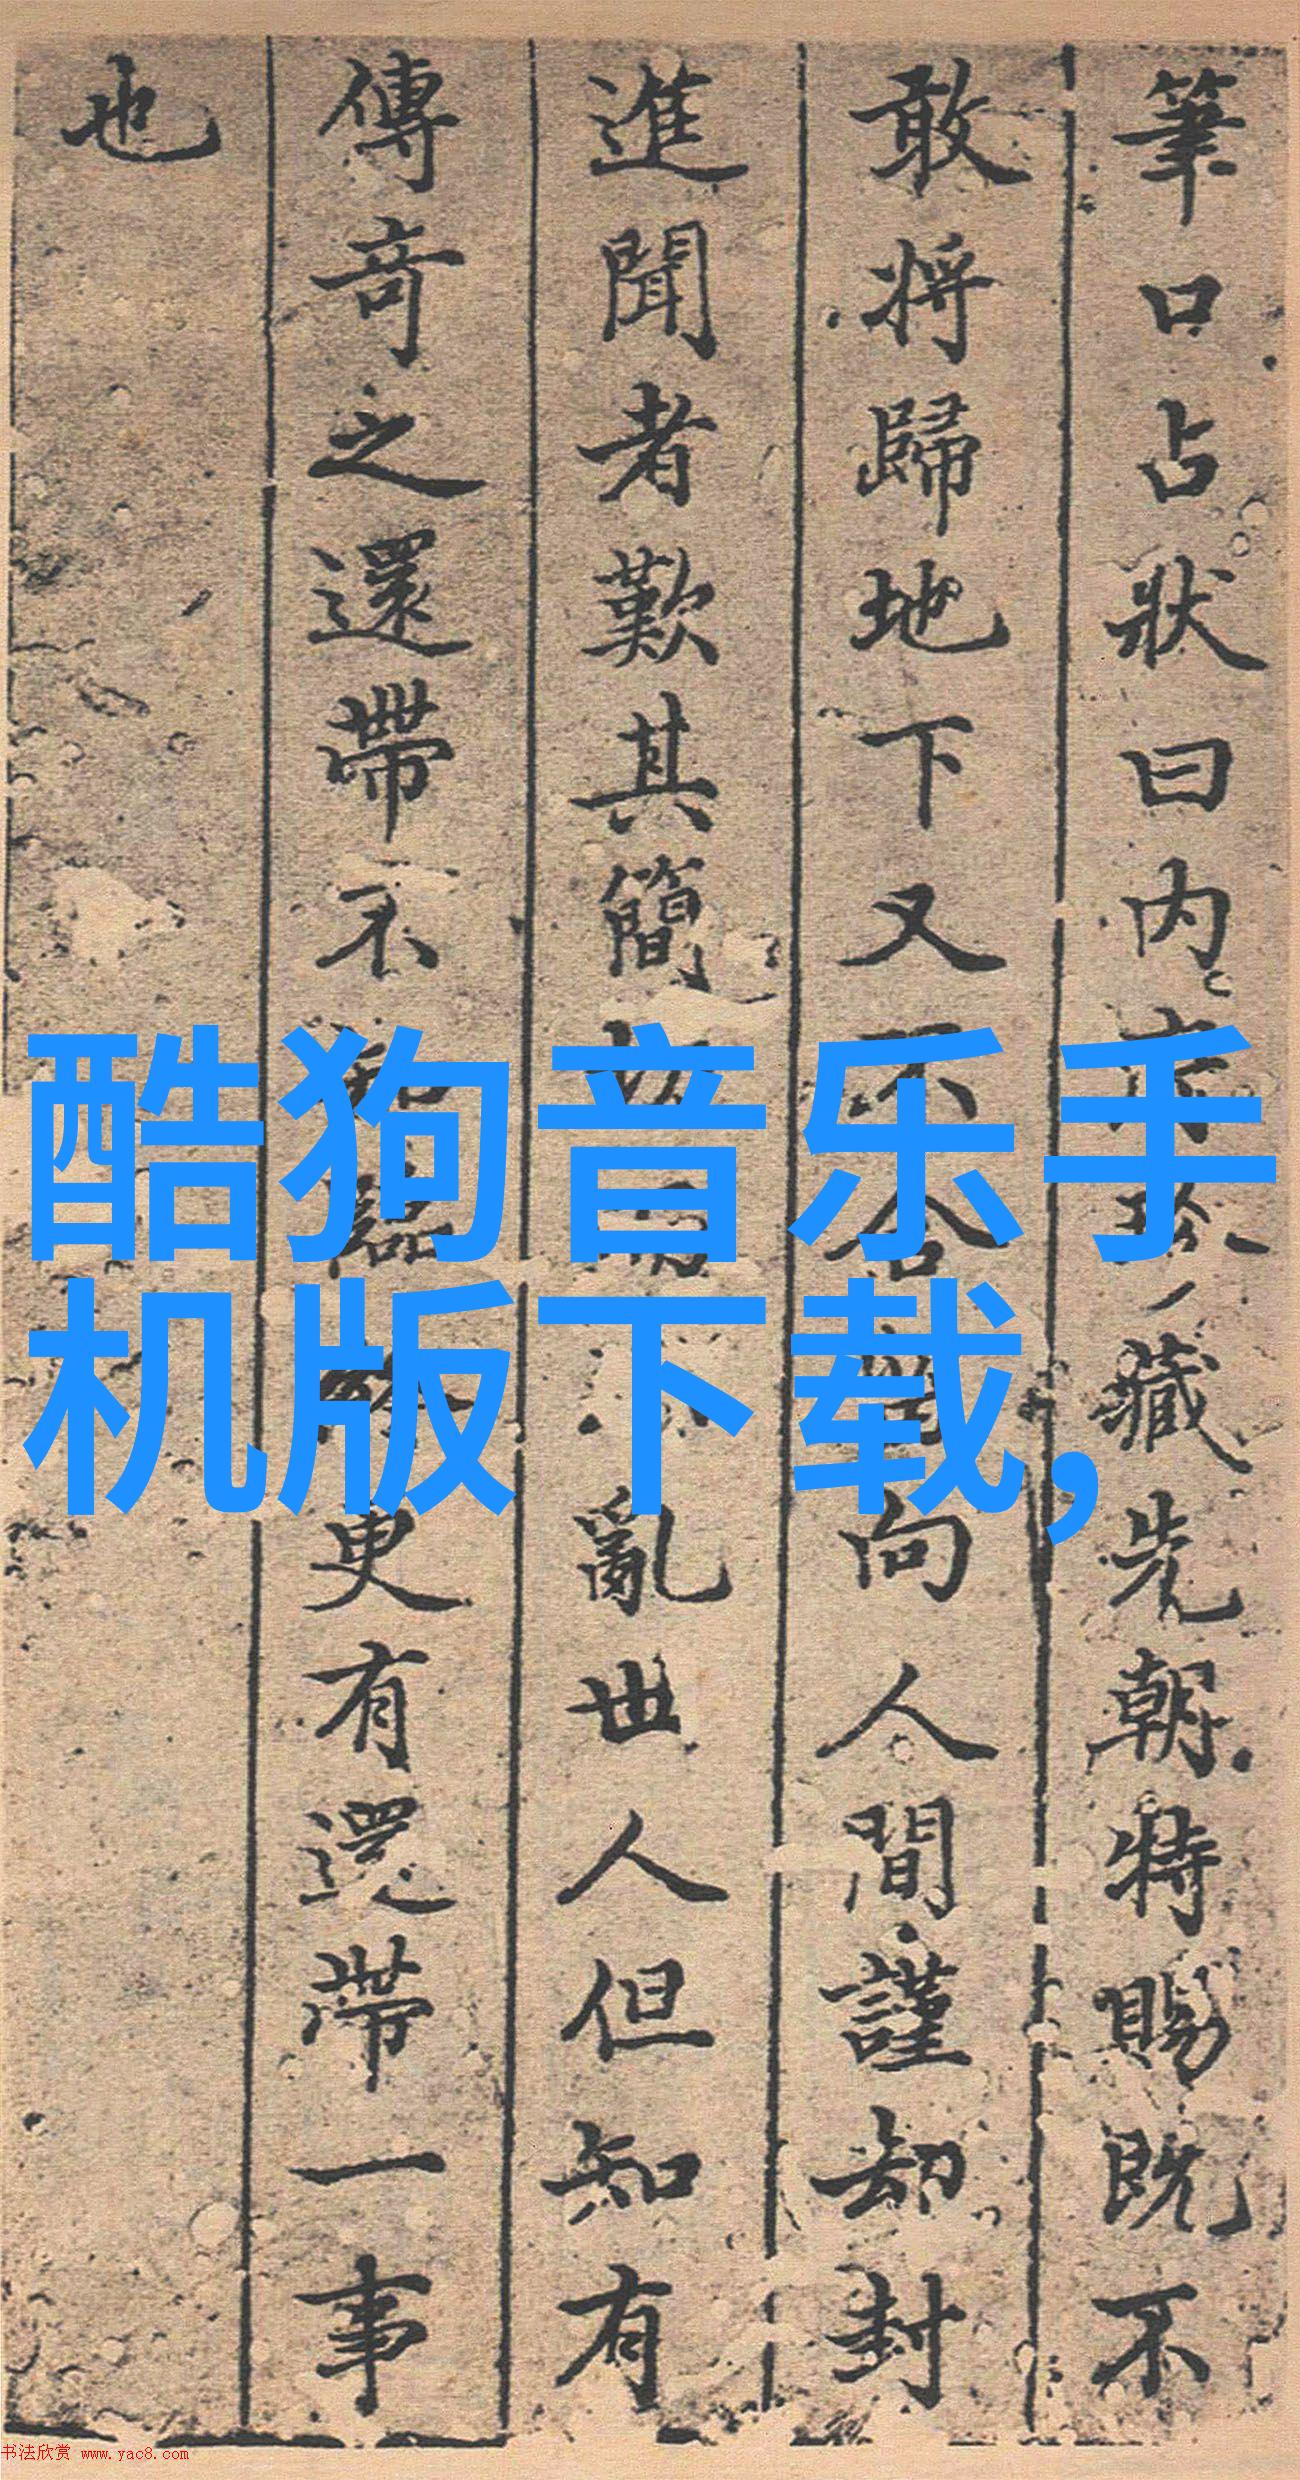 筆口占狀曰内藏先朝特賜既不
敢將歸地下又不合向人間謹却封
進聞者歎其簡亂世人但知有
傳奇之還帶不更有還帶一事
也
酷狗音乐手
机版下载,
书法欣赏 www.yac8.com